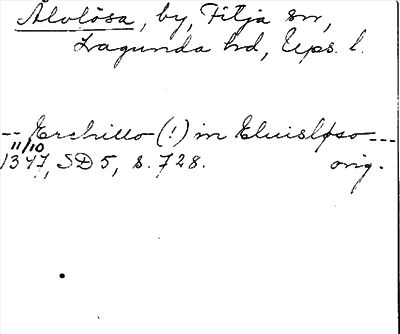 Älvlösa, by, Fitja sn,
Lagunda hd, Ups. l.
-- Erchillo (!) in Eluisløso ---
11/10
1347, SD 5, s. 728. orig.